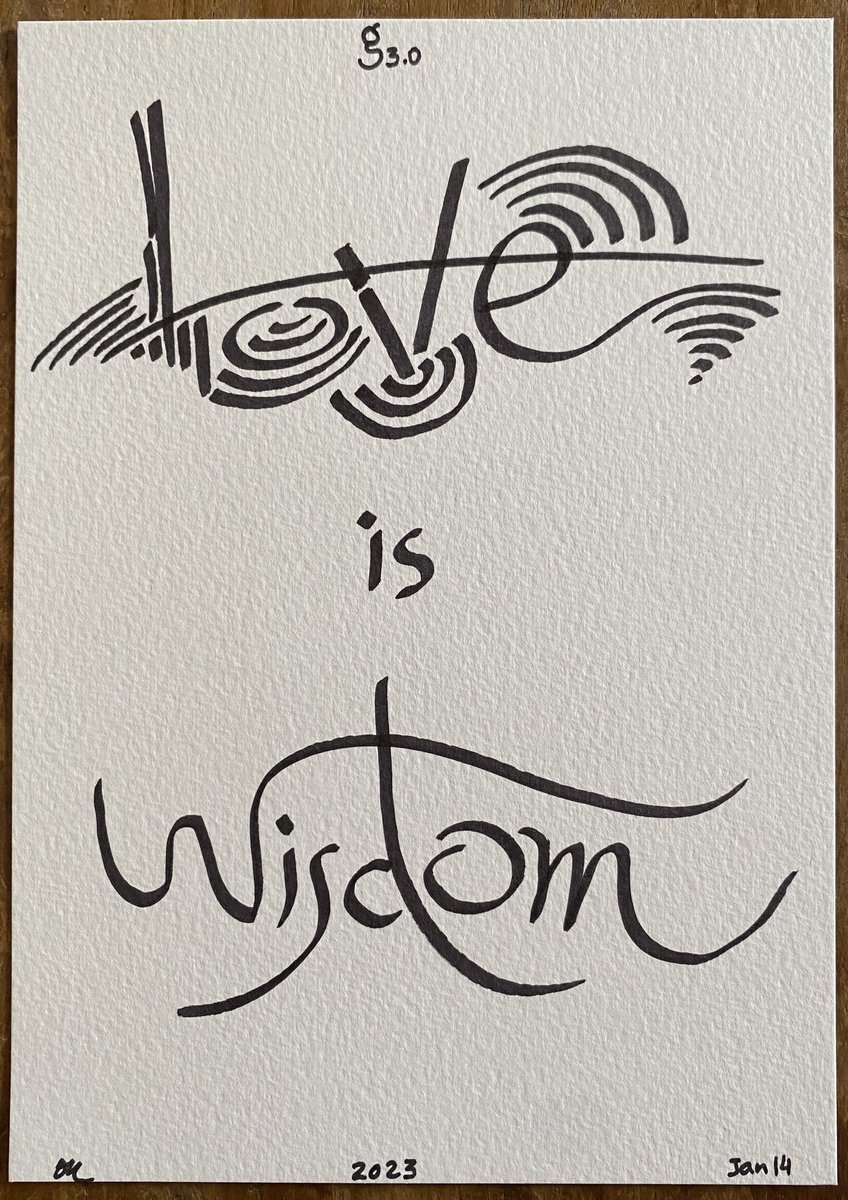 g3.0
Love
is
Wisdom
2023 Jan 14